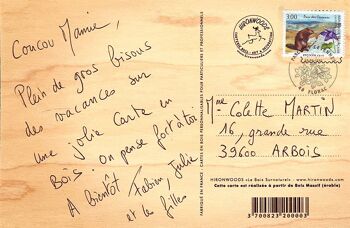 Coucou Mamie,
Plein de gros bisous
des vacances sur
une jolie carte en
BOIS. on pense fort à toi
A bientôt Fabien, Julie
et les filles
HIRONWOODS
3,00
Parc des Cévennes
48 FLORAC
Mme Colette MARTIN
16, grande rue
39600 ARBOIS
HIRONWOODS «Le Bois Surnaturel» www.hironwoods.com
Cette carte est réalisée à partir de Bois Massif (érable)
3 700823 200003
FABRIQUÉ EN FRANCE - CARTES EN BOIS PERSONNALISABLES POUR PARTICULIERS ET PROFESSIONNELS